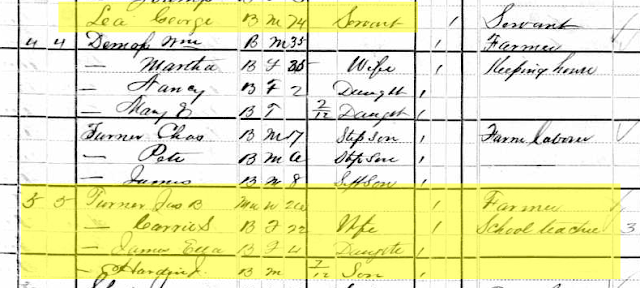 Lea George B M 24 Servant 1 Servant
4 4 Demoss Wm B M 35 1 Farmer
— Martha B F 35 Wife 1 Keeping house
— Nancy B F 2 Daught 1
— Mary E B F 7/12 Daught 1
Turner Chas B M 17 Step son 1 Farm laborer
— Pete B M Step son 1
— James B M 8 Step son 1
5 5 Turner Jas B Mu M 26 1 Farmer
— Carrie S B F 22 Wife 1 School teacher 3
— James Etta B F 4 Daughte 1
— Hardin J. B M 7/12 Son 1